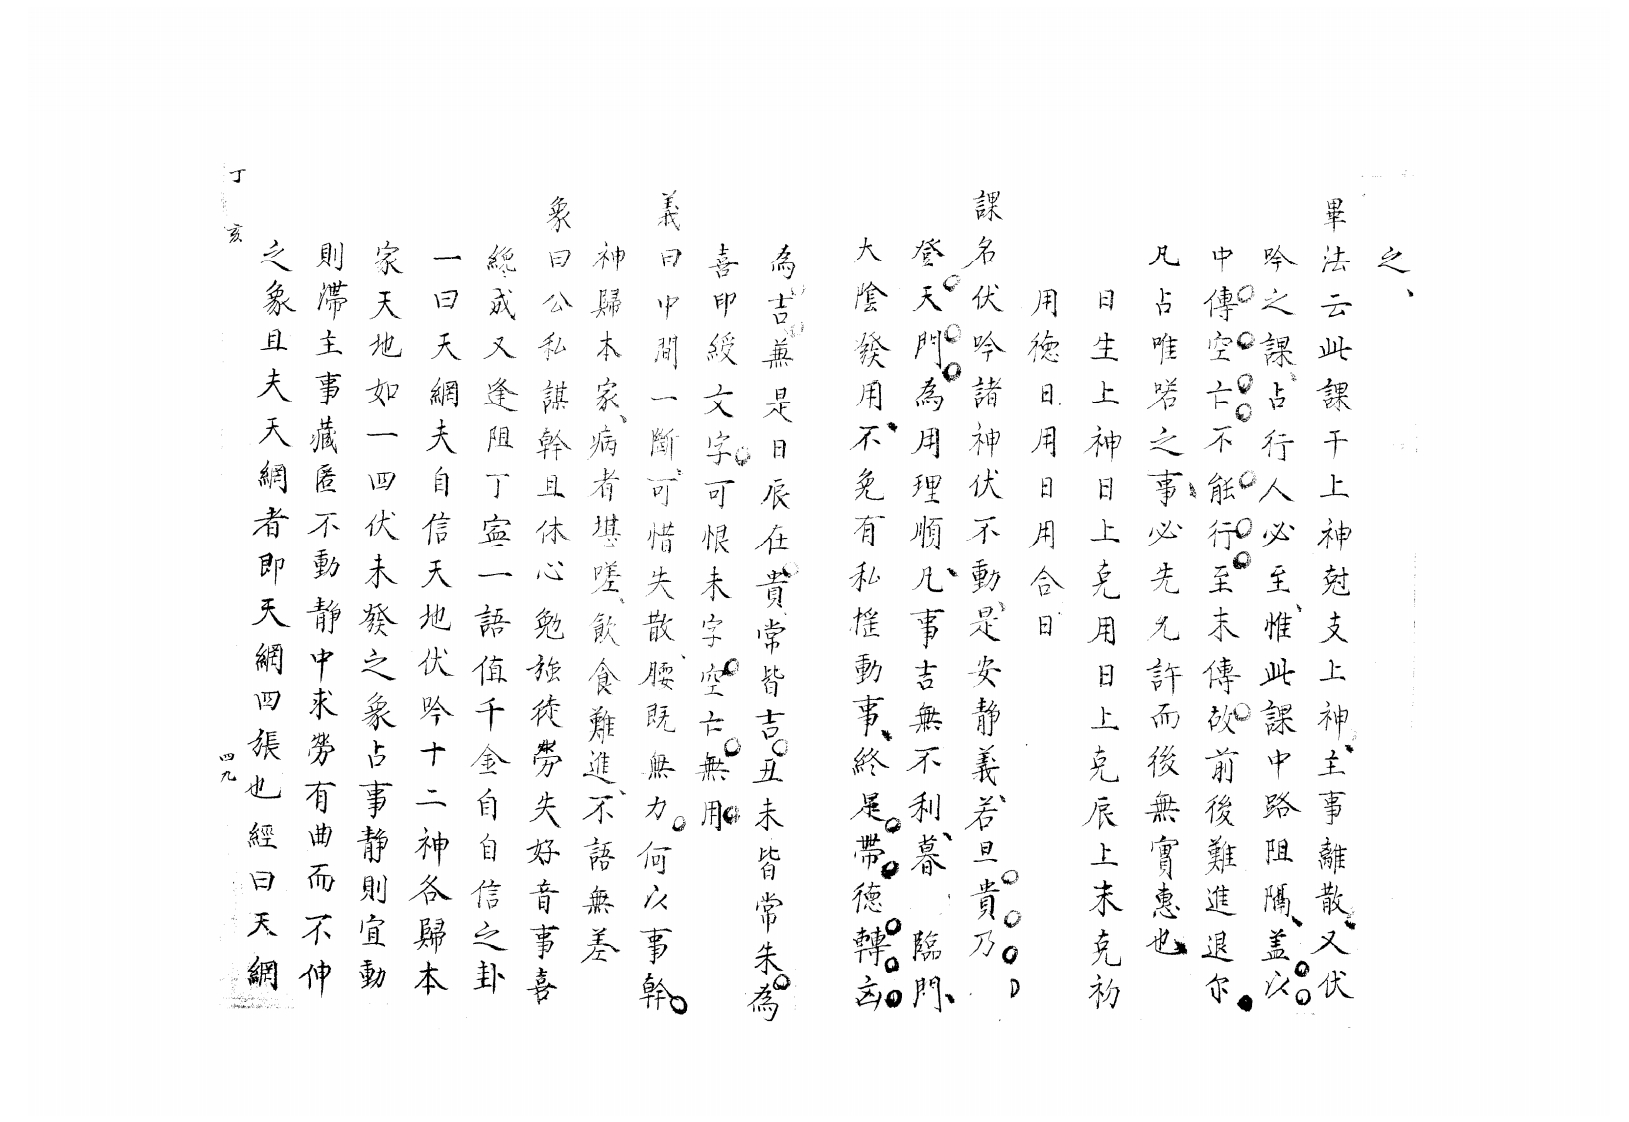 之、
畢法云此課干上神尅支上神、主事離散、又伏
吟之課、占行人必至、惟此課中路阻隔、盖以
中傳空亡不能行至末傳故前後難進退尔
凡占唯喏之事、必先允許而後無實惠也
日生上神日上克用日上克辰上末克初
用德日用日用合日
課名伏吟諸神伏不動、是安静義、若旦貴乃
登天門為用理順、凡事吉無不利、暮 臨門、
大陰發用、不免有私搖動事、終是帶德轉凶
為吉兼是日辰在貴常皆吉丑未皆常朱為
喜印綬文字可恨未字空亡無用
義曰中間一斷、可惜失散、腰既無力何以事幹
神歸本家、病者堪嗟、飲食難進、不語無差
象曰公私謀幹且休心勉強徒勞失好音事喜
纔成又逢阻丁寧一語值千金自自信之卦
一曰天網夫自信天地伏吟十二神各歸本
家天地如一四伏未發之象占事靜則宜動
則滯主事藏匿不動靜中求勞有曲而不伸
之象且夫天網者即天網四張也經曰天網
丁亥
四九